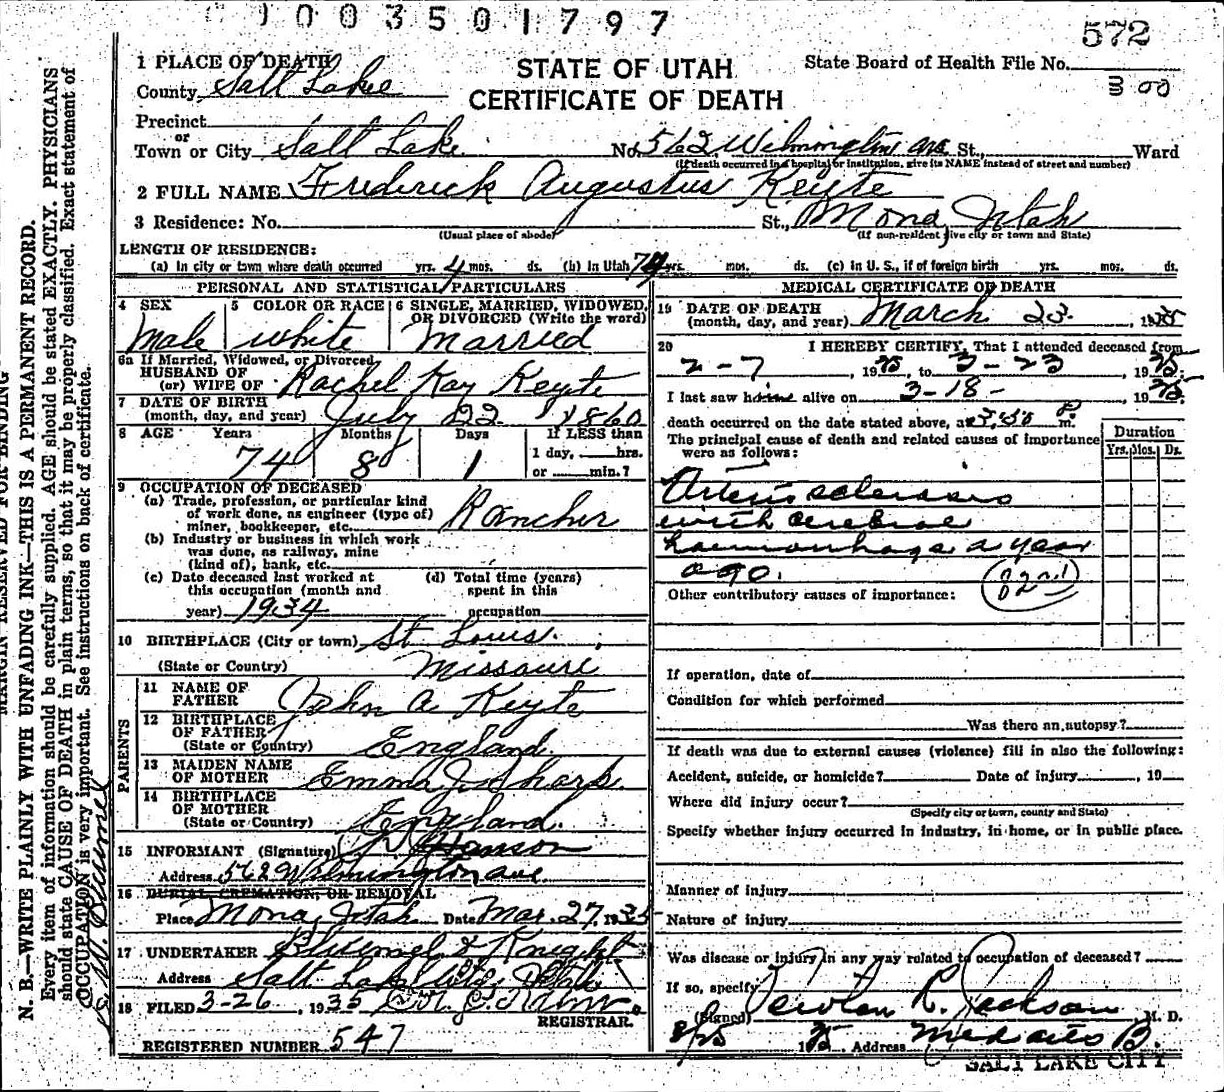 1003501797
572
1 PLACE OF DEATH
STATE OF UTAH
CERTIFICATE OF DEATH
State Board of Health File No.
300
County Salt Lake
Precinct
or
Town or City Salt Lake No. 562 Wilmington ave St., Ward
(If death occurred in a hospital or institution, give its NAME instead of street and number)
2 FULL NAME Frderick Augustus Keyte
3 Residence: No. St., Mona, Utah
(Usual place of abode) (If non-resident give city or town and State)
LENGTH OF RESIDENCE:
(a) In city or town where death occurred yrs. 4 mos. ds. (b) In Utah 74 yrs. mos. ds. (c) In U. S., if of foreign birth yrs. mos. ds.
PERSONAL AND STATISTICAL PARTICULARS
4 SEX
Male
5 COLOR OR RACE
white
6 SINGLE, MARRIED, WIDOWED,
OR DIVORCED (Write the word)
Married
6a If Married, Widowed, or Divorced
HUSBAND OF
(or) WIFE OF Rachel Kay Keyte
7 DATE OF BIRTH
(month, day, and year) July 22 1860
8 AGE Years Months Days If LESS than
1 day, hrs.
74 8 1
or min.?
9 OCCUPATION OF DECEASED
(a) Trade, profession, or particular kind
of work done, as engineer (type of)
miner, bookkeeper, etc. Rancher
(b) Industry or business in which work
was done, as railway, mine
(kind of), bank, etc.
(c) Date deceased last worked at
this occupation (month and
year) 1934
(d) Total time (years)
spent in this
occupation
10 BIRTHPLACE (City or town) St Louis,
(State or Country) Missouri
PARENTS
11 NAME OF
FATHER John A Keyte
12 BIRTHPLACE
OF FATHER
(State or Country) England
13 MAIDEN NAME
OF MOTHER Emma J. Sharp
14 BIRTHPLACE
OF MOTHER
(State or Country) England
15 INFORMANT (Signature) Hanson
Address 562 Wilmington ave
16 BURIAL, CREMATION, OR REMOVAL
Place Mona, Utah Date Mar. 27, 1935
17 UNDERTAKER Bluemel & Knight
Address Salt Lake City, Utah
18 FILED 3-26, 1935
REGISTRAR.
REGISTERED NUMBER 547
MEDICAL CERTIFICATE OF DEATH
19 DATE OF DEATH
(month, day, and year) March 23, 1935
20 I HEREBY CERTIFY, That I attended deceased from
2-7, 1935, to 3-23 1935.
I last saw him alive on 3-18-, 1935.
death occurred on the date stated above, at P. m.
The principal cause of death and related causes of importance
were as follows:
Duration
Yrs. Mos. Ds.
Arterio sclerosis
with cerebral
haemorrhage a year
ago.
Other contributory causes of importance:
If operation, date of
Condition for which performed
Was there an autopsy?
If death was due to external causes (violence) fill in also the following:
Accident, suicide, or homicide? Date of injury , 19
Where did injury occur?
(Specify city or town, county and State)
Specify whether injury occurred in industry, in home, or in public place.
Manner of injury
Nature of injury
Was disease or injury in any way related to occupation of deceased?
If so, specify
(Signed) R. Jackson, M. D.
3/25 1935, Address Med Arts B.
SALT LAKE CITY
MARGIN RESERVED FOR BINDING
N. B.—WRITE PLAINLY WITH UNFADING INK—THIS IS A PERMANENT RECORD.
Every item of information should be carefully supplied. AGE should be stated EXACTLY. PHYSICIANS
should state CAUSE OF DEATH in plain terms, so that it may be properly classified. Exact statement of
OCCUPATION is very important. See instructions on back of certificate.